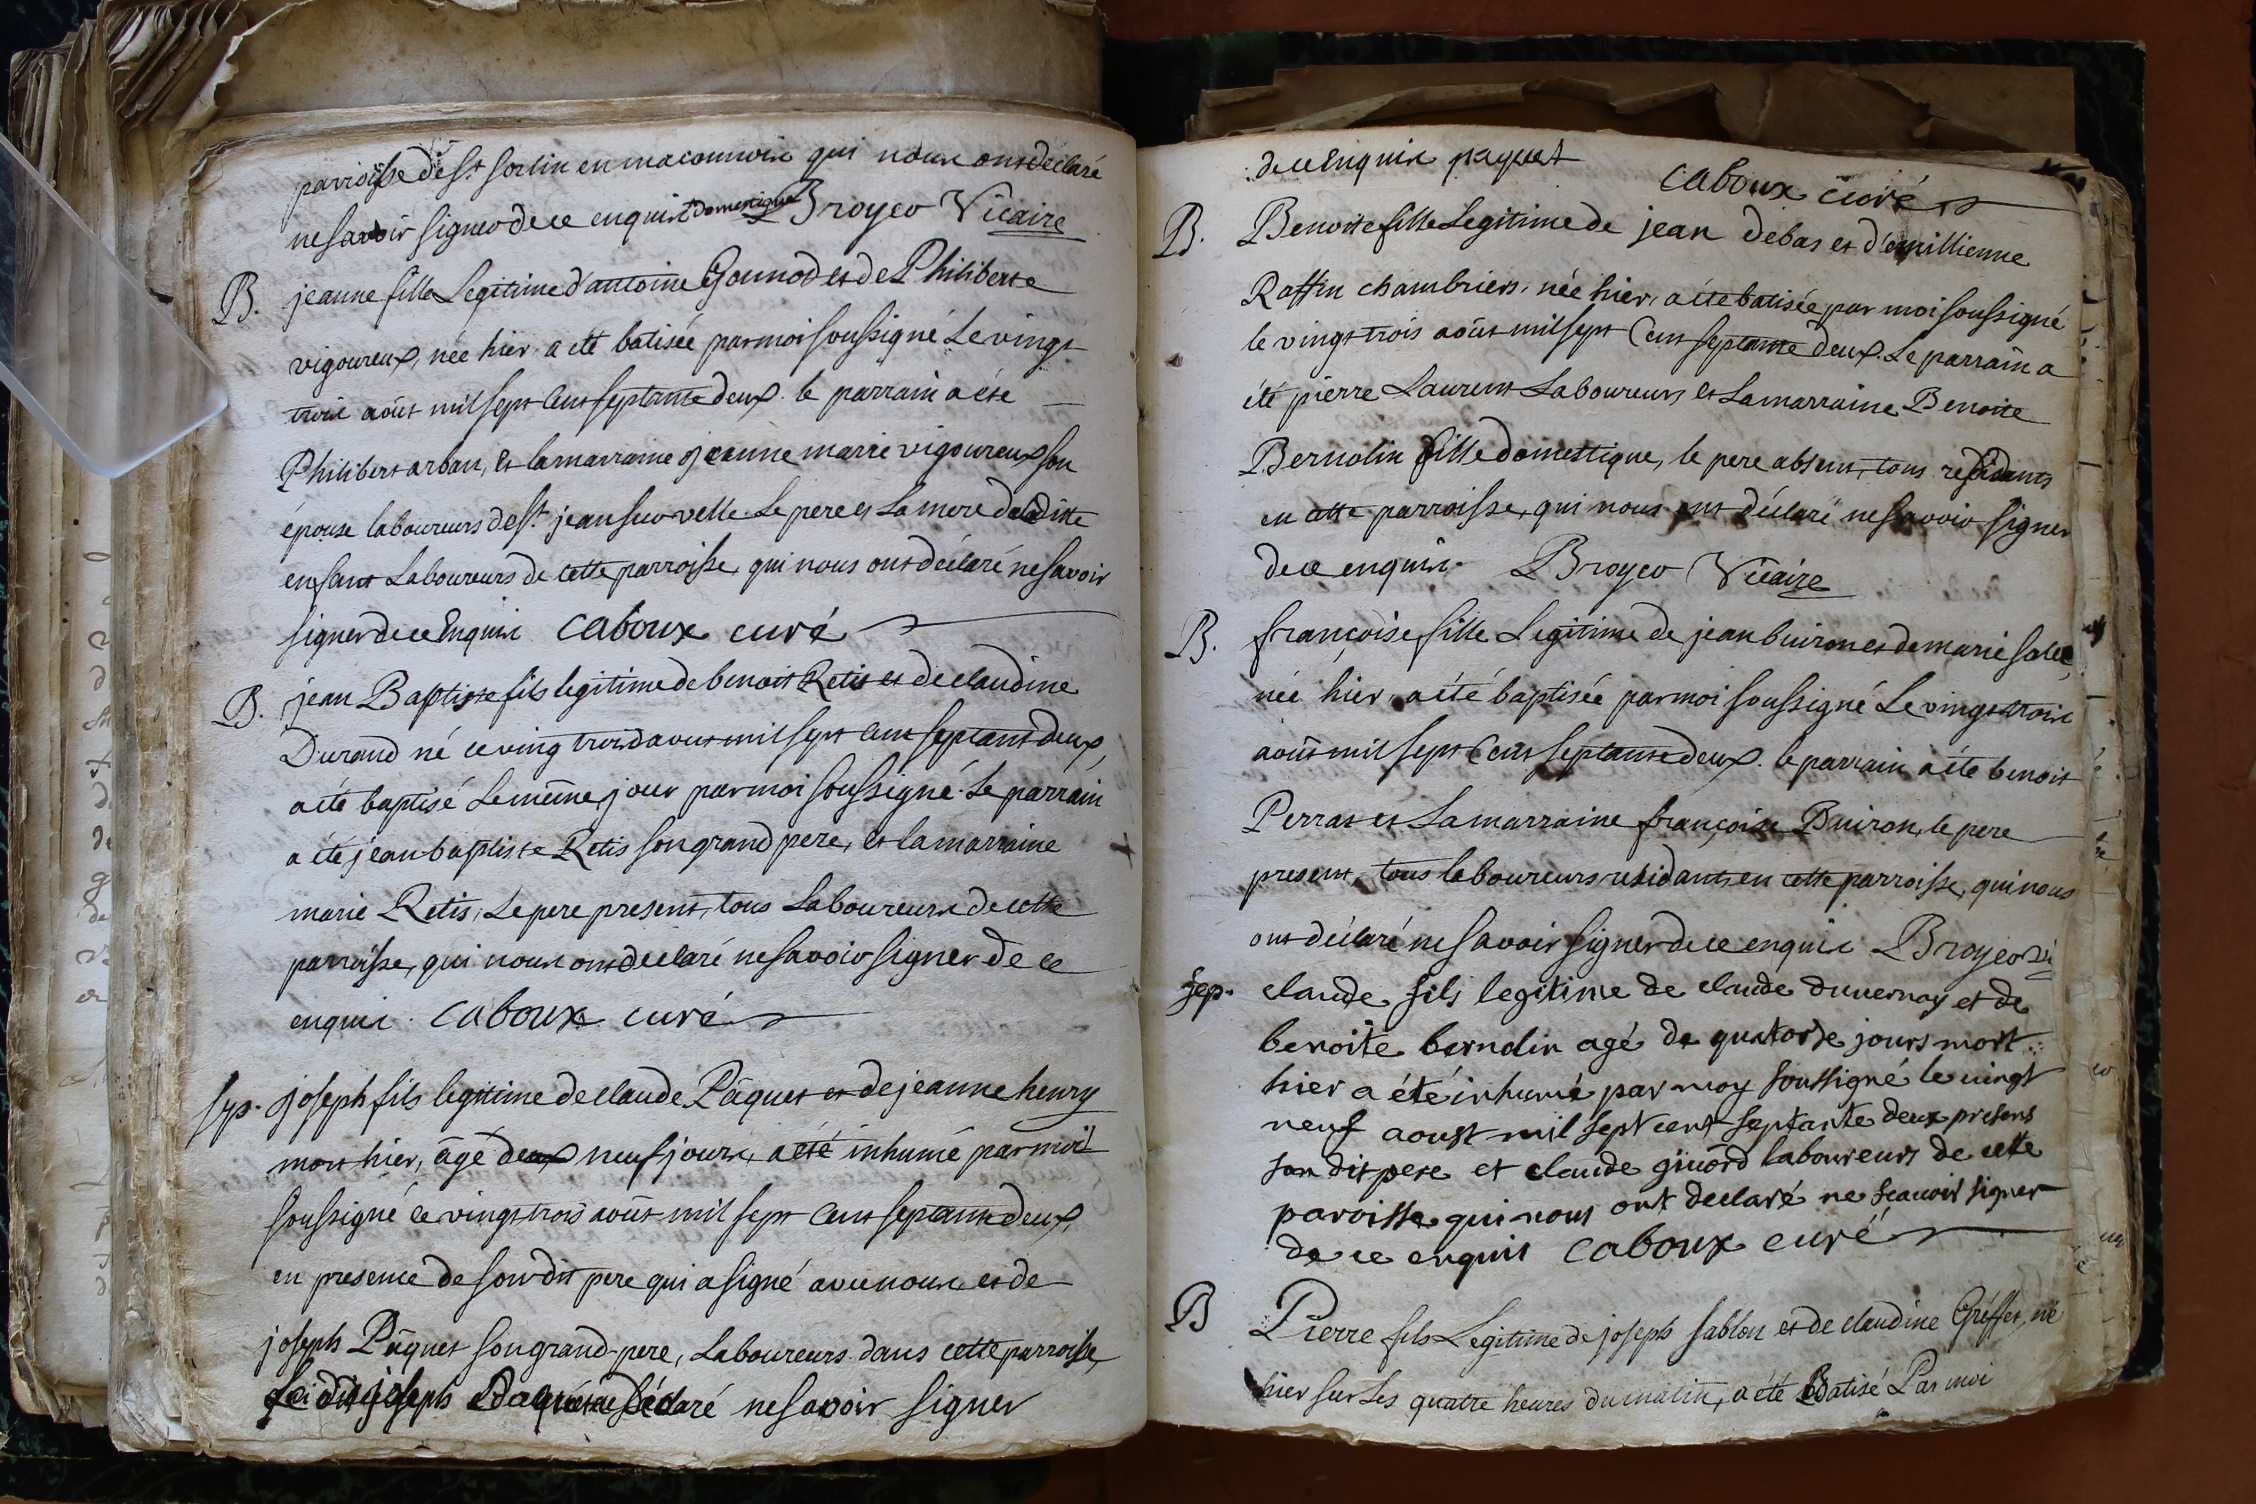 parroisse de St Sorlin en maconnoix qui nous ont declaré
ne savoir signer de ce enquis domestique Broyer Vicaire
B. jeanne fille Legitime d'antoine Gounod et de Philiberte
vigoureux, née hier a eté batisée par moi soussigné Le vingt
trois août mil sept cent septante deux. le parrain a été
Philibert arban, et la marraine jeanne marie vigoureux son
épouse laboureurs de St jean sur velle Le pere et La mere de laditte
enfant Laboureurs de cette parroisse, qui nous ont déclaré ne savoir
signer de ce Enquis Caboux curé
B. jean Baptiste fils legitime de benoit Retis et de claudine
Durand né ce vingt trois d'aout mil sept cent septante deux,
a été baptisé Le même jour par moi soussigné. Le parrain
a été jean baptiste Retis son grand pere, et la marraine
marie Retis, Le pere present, tous Laboureurs de cette
parroisse, qui nous ont déclaré ne savoir signer de ce
enquis. Caboux curé
Sep. joseph fils legitime de claude Pâquet et de jeanne henry
mort hier, âgé deux neuf jours, a été inhumé par moi
soussigné ce vingt trois août mil sept cent septante deux,
en presence de son dit pere qui a signé avec nous et de
joseph Pâquet son grand-pere, Laboureurs dans cette parroisse,
joseph déclaré ne savoir signer
de ce Enquis paquet
Caboux curé
B. Benoite fille Legitime de jean debas et d'emillienne
Raffin chambriers, née hier, a été batisée par moi soussigné
le vingt trois août mil sept Cent septante deux. Le parrain a
été pierre Laurent Laboureurs et La marraine Benoite
Bernolin fille domestique, le pere absent, tous residants
en cette parroisse, qui nous ont déclaré ne savoir signer
de ce enquis. Broyer Vicaire
B. françoise fille Legitime de jean buiron et de marie
née hier, a été baptisée par moi soussigné Le vingt trois
août mil sept Cent septante deux. le parrain a été benoit
Perrat et La marraine françoise Buiron, le pere
present, tous laboureurs residants en cette parroisse, qui nous
ont déclaré ne savoir signer de ce enquis Broyer Vi
Sep. claude fils legitime de claude duvernay et de
benoite bernolin agé de quatorze jours mort
hier a été inhumé par moy soussigné le vingt
neuf aoust mil sept cent septante deux presens
son dit pere et claude laboureurs de cette
paroisse qui nous ont declaré ne scavoir signer
de ce enquis Caboux curé
B Pierre fils Legitime de joseph sablon et de claudine Gréffet, né
hier sur Les quatre heures du matin, a été Batisé Par moi